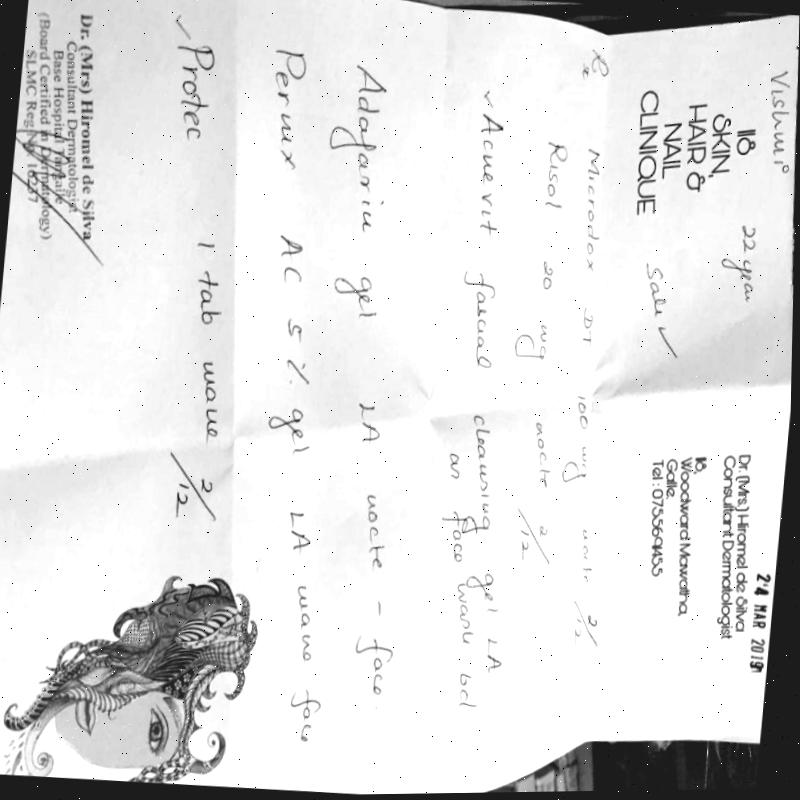 Vishmi
22 year
118
SKIN,
HAIR &
NAIL
CLINIQUE
Sale ✓
24 MAR 2019
Dr. (Mrs) Hiromel de Silva
Consultant Dermatologist
118,
Woodward Mawatha,
Galle.
Rx
Microdox DT 100 mg nocte 2/12
Risol 20 mg nocte 2/12
✓ Acnevit facial cleansing gel LA
as face wash bd
Adagarin gel LA nocte - face.
Pernex AC 5% gel LA mane face
✓ Protec 1 tab mane 2/12
Dr. (Mrs) Hiromel de Silva
Consultant Dermatologist
Base Hospital
(Board Certified in Dermatology)
SLMC Reg No